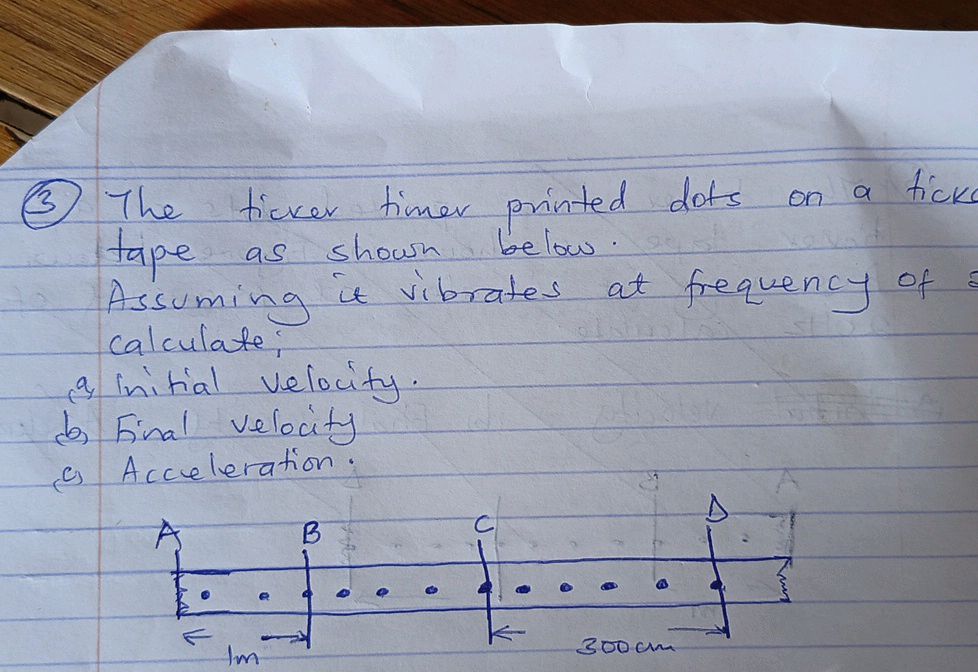 ③ The ticker timer printed dots on a
tape as shown below.
Assuming it vibrates at frequency of
calculate;
(a) initial velocity.
(b) Final velocity
(c) Acceleration.
A B C D
1m 300cm